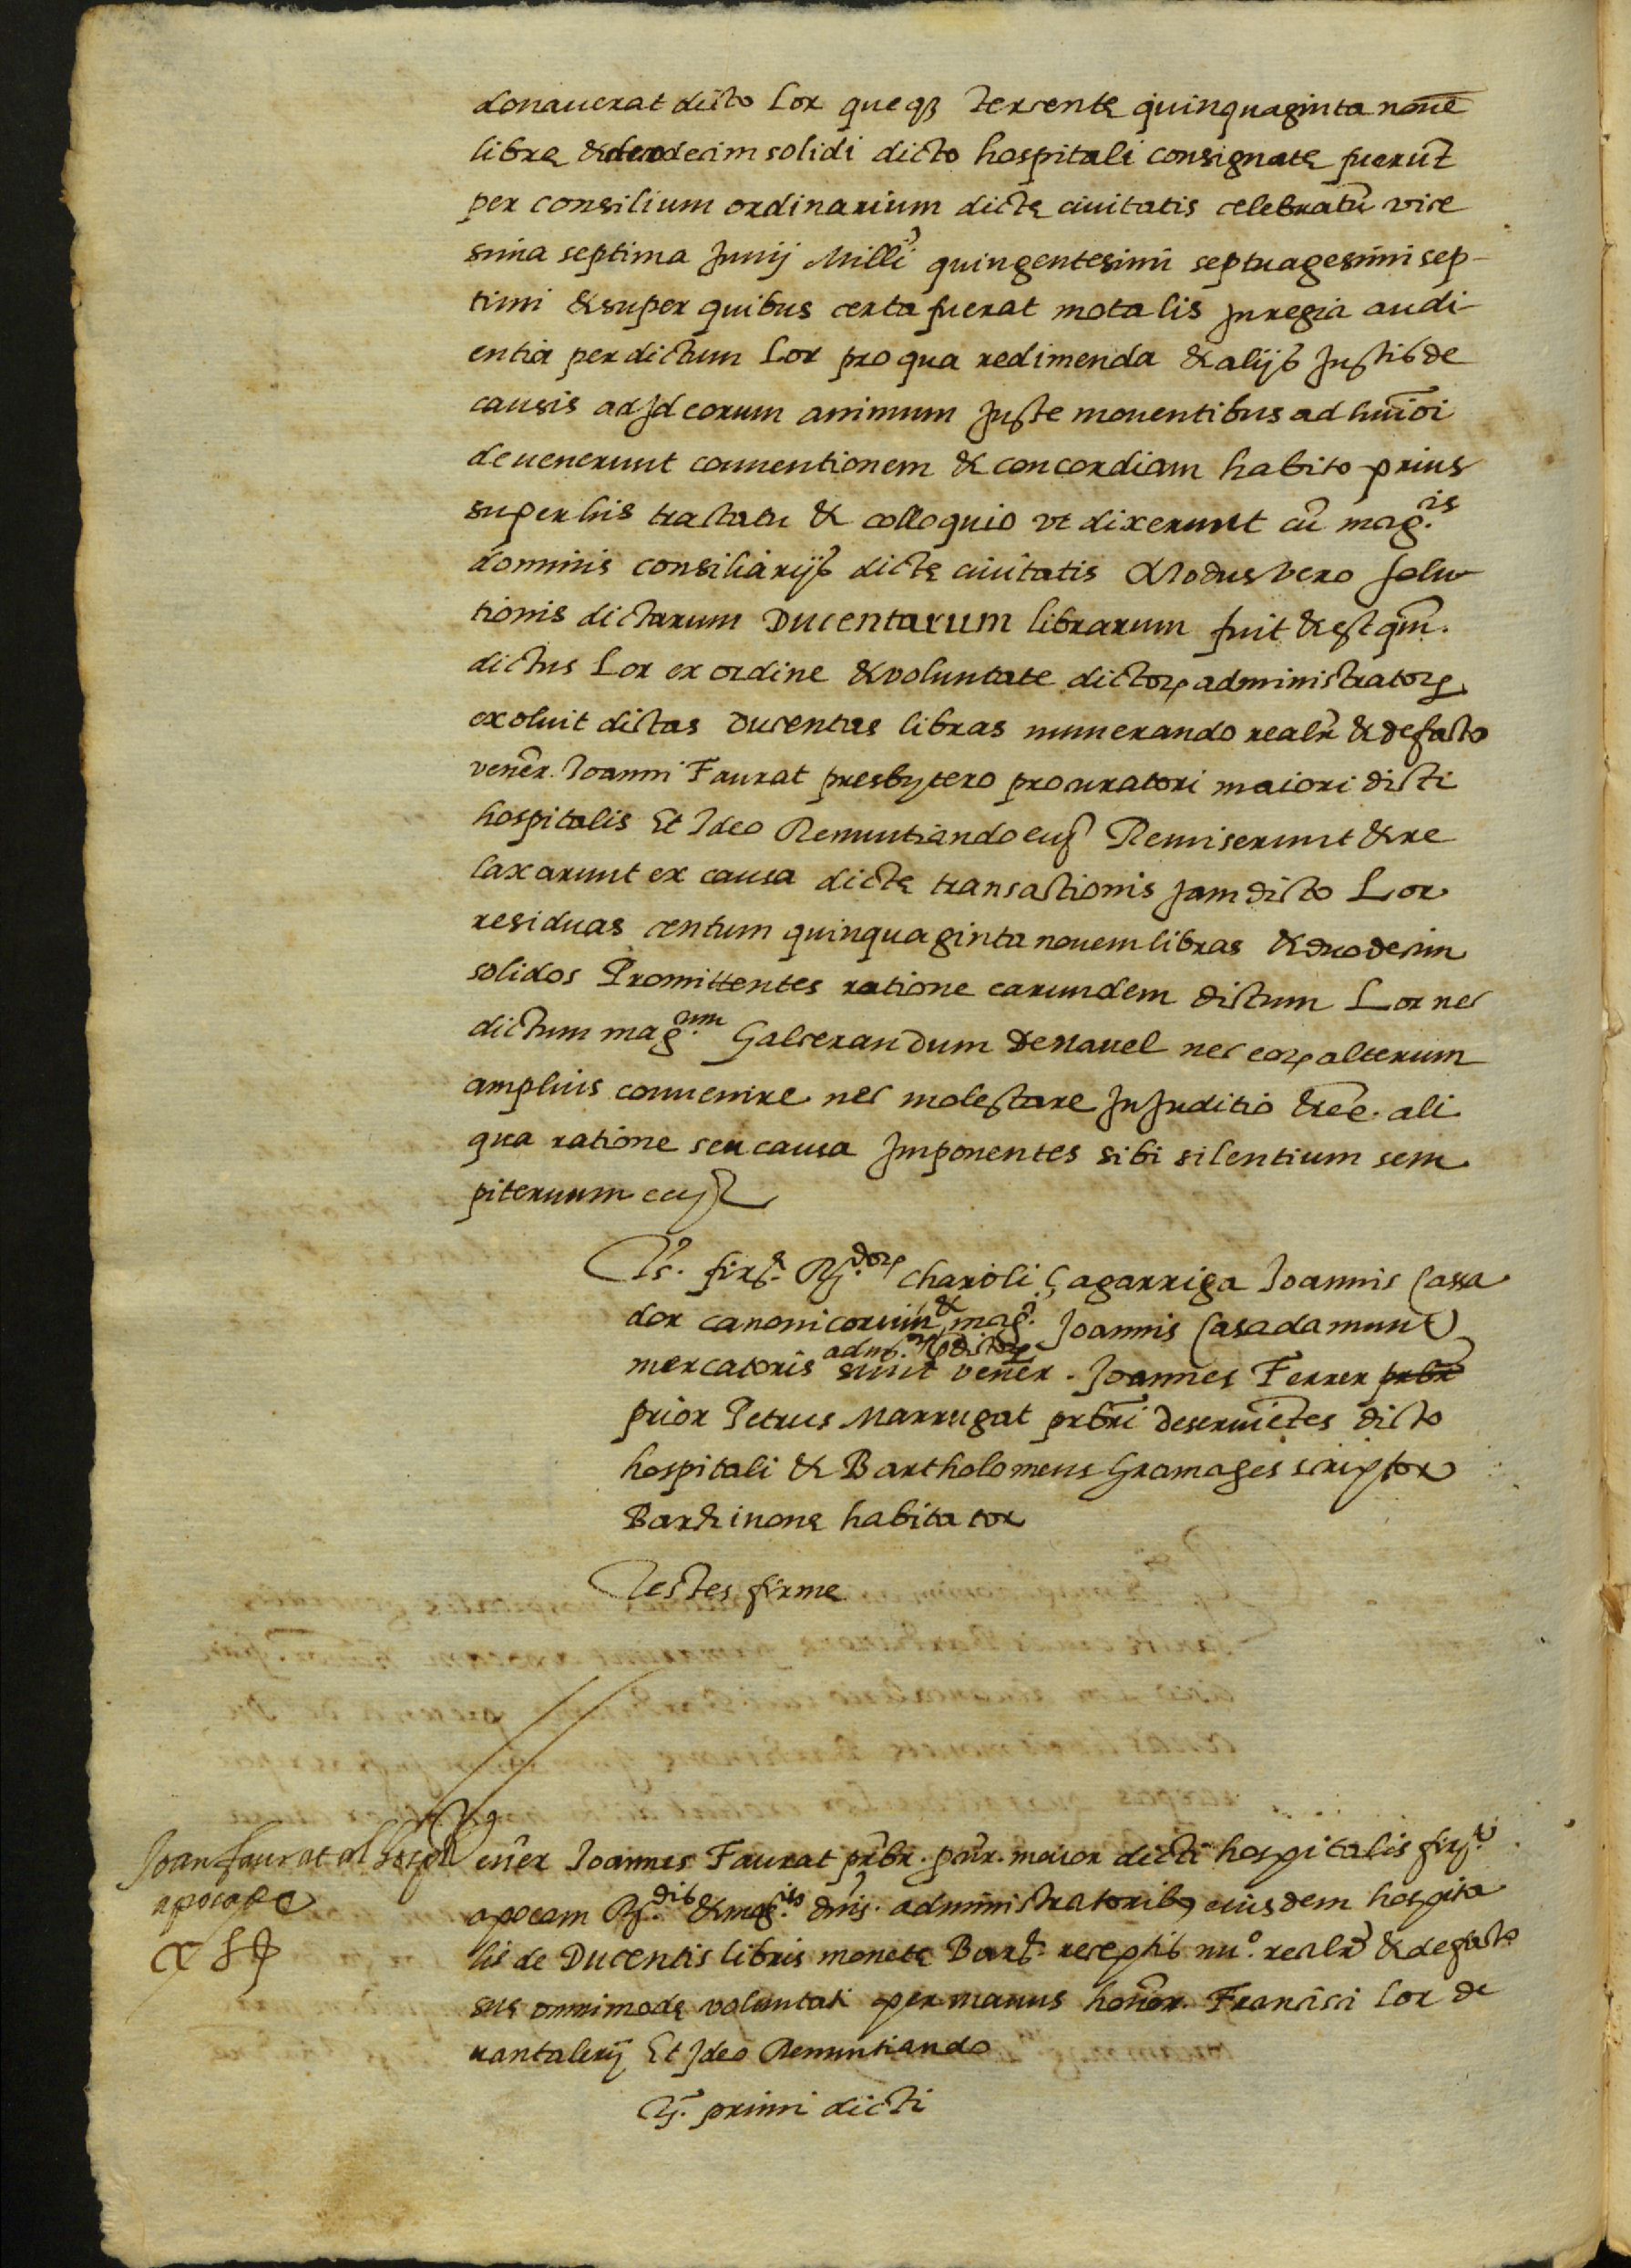 donauerat dicto Lor que qȝ tercentę quinquaginta nouē
librę & duodecim solidi dicto hospitali consignatę fuerūt
per consilium ordinarium dictę ciuitatis celebratū vice
sima septima Junij Milli quingentesimi septuagesimi sep-
timi & super quibus certa fuerat mota lis Jn regia audi-
entia per dictum Lor pro qua redimenda & alijs Justis de
causis ad Jd eorum animum Juste mouentibus ad huiōi
deuenerunt conuentionem & concordiam habito prius
super his tractatu & colloquio vt dixerunt cū mag.is
dominis consiliarijs dictę ciuitatis Modus vero solu-
tionis dictarum Ducentarum librarum fuit & est qm̄.
dictus Lor ex ordine & voluntate dictoꝝ administratoꝝ
exoluit dictas ducentas libras numerando realr̄ & de facto
venēr. Joanni Faurat presbytero procuratori maiori dicti
hospitalis Et Jdeo Renuntiando &c Remiserunt & re
laxarunt ex causa dictę transactionis Jam dicto Lor
residuas centum quinquaginta nouem libras & duodecim
solidos Promittentes ratione earundem dictum Lor nec
dictum mag.um Galcerandum de Nauel nec eoꝝ alterum
amplius conuenire nec molestare Jn Juditio & ex̄. ali
qua ratione seu causa Jmponentes sibi silentium sem
piternum &c
Ts. firę. R.doꝝ Charoli Çagarriga Joannis Cassa
dor canonicorum & mag.ci Joannis Casadamunt
mercatoris adm.oꝝ dictoꝝ sunt venēr. Joannes Ferrer prbr
prior Petrus Marrugat prb̄ri deseruiētes dicto
hospitali & Bartholomeus Gramages scriptor
Barchinonę habitator
Testes firme
Joan faurat al hospl
apocape
cc ll
Venēr Joannes Faurat prb̄r. pn̄r. maior dicti hospitalis firt
apocam R.dis & mag.cis dn̄is. administratoribꝫ eiusdem hospita
lis de Ducentis libris monetę Barc̄. receptis nu.o realr̄ & de facto
suę omnimodę voluntati per manus honor. Francisci Lor de
rantalerij Et Jdeo Renuntiando
Ts. primi dicti